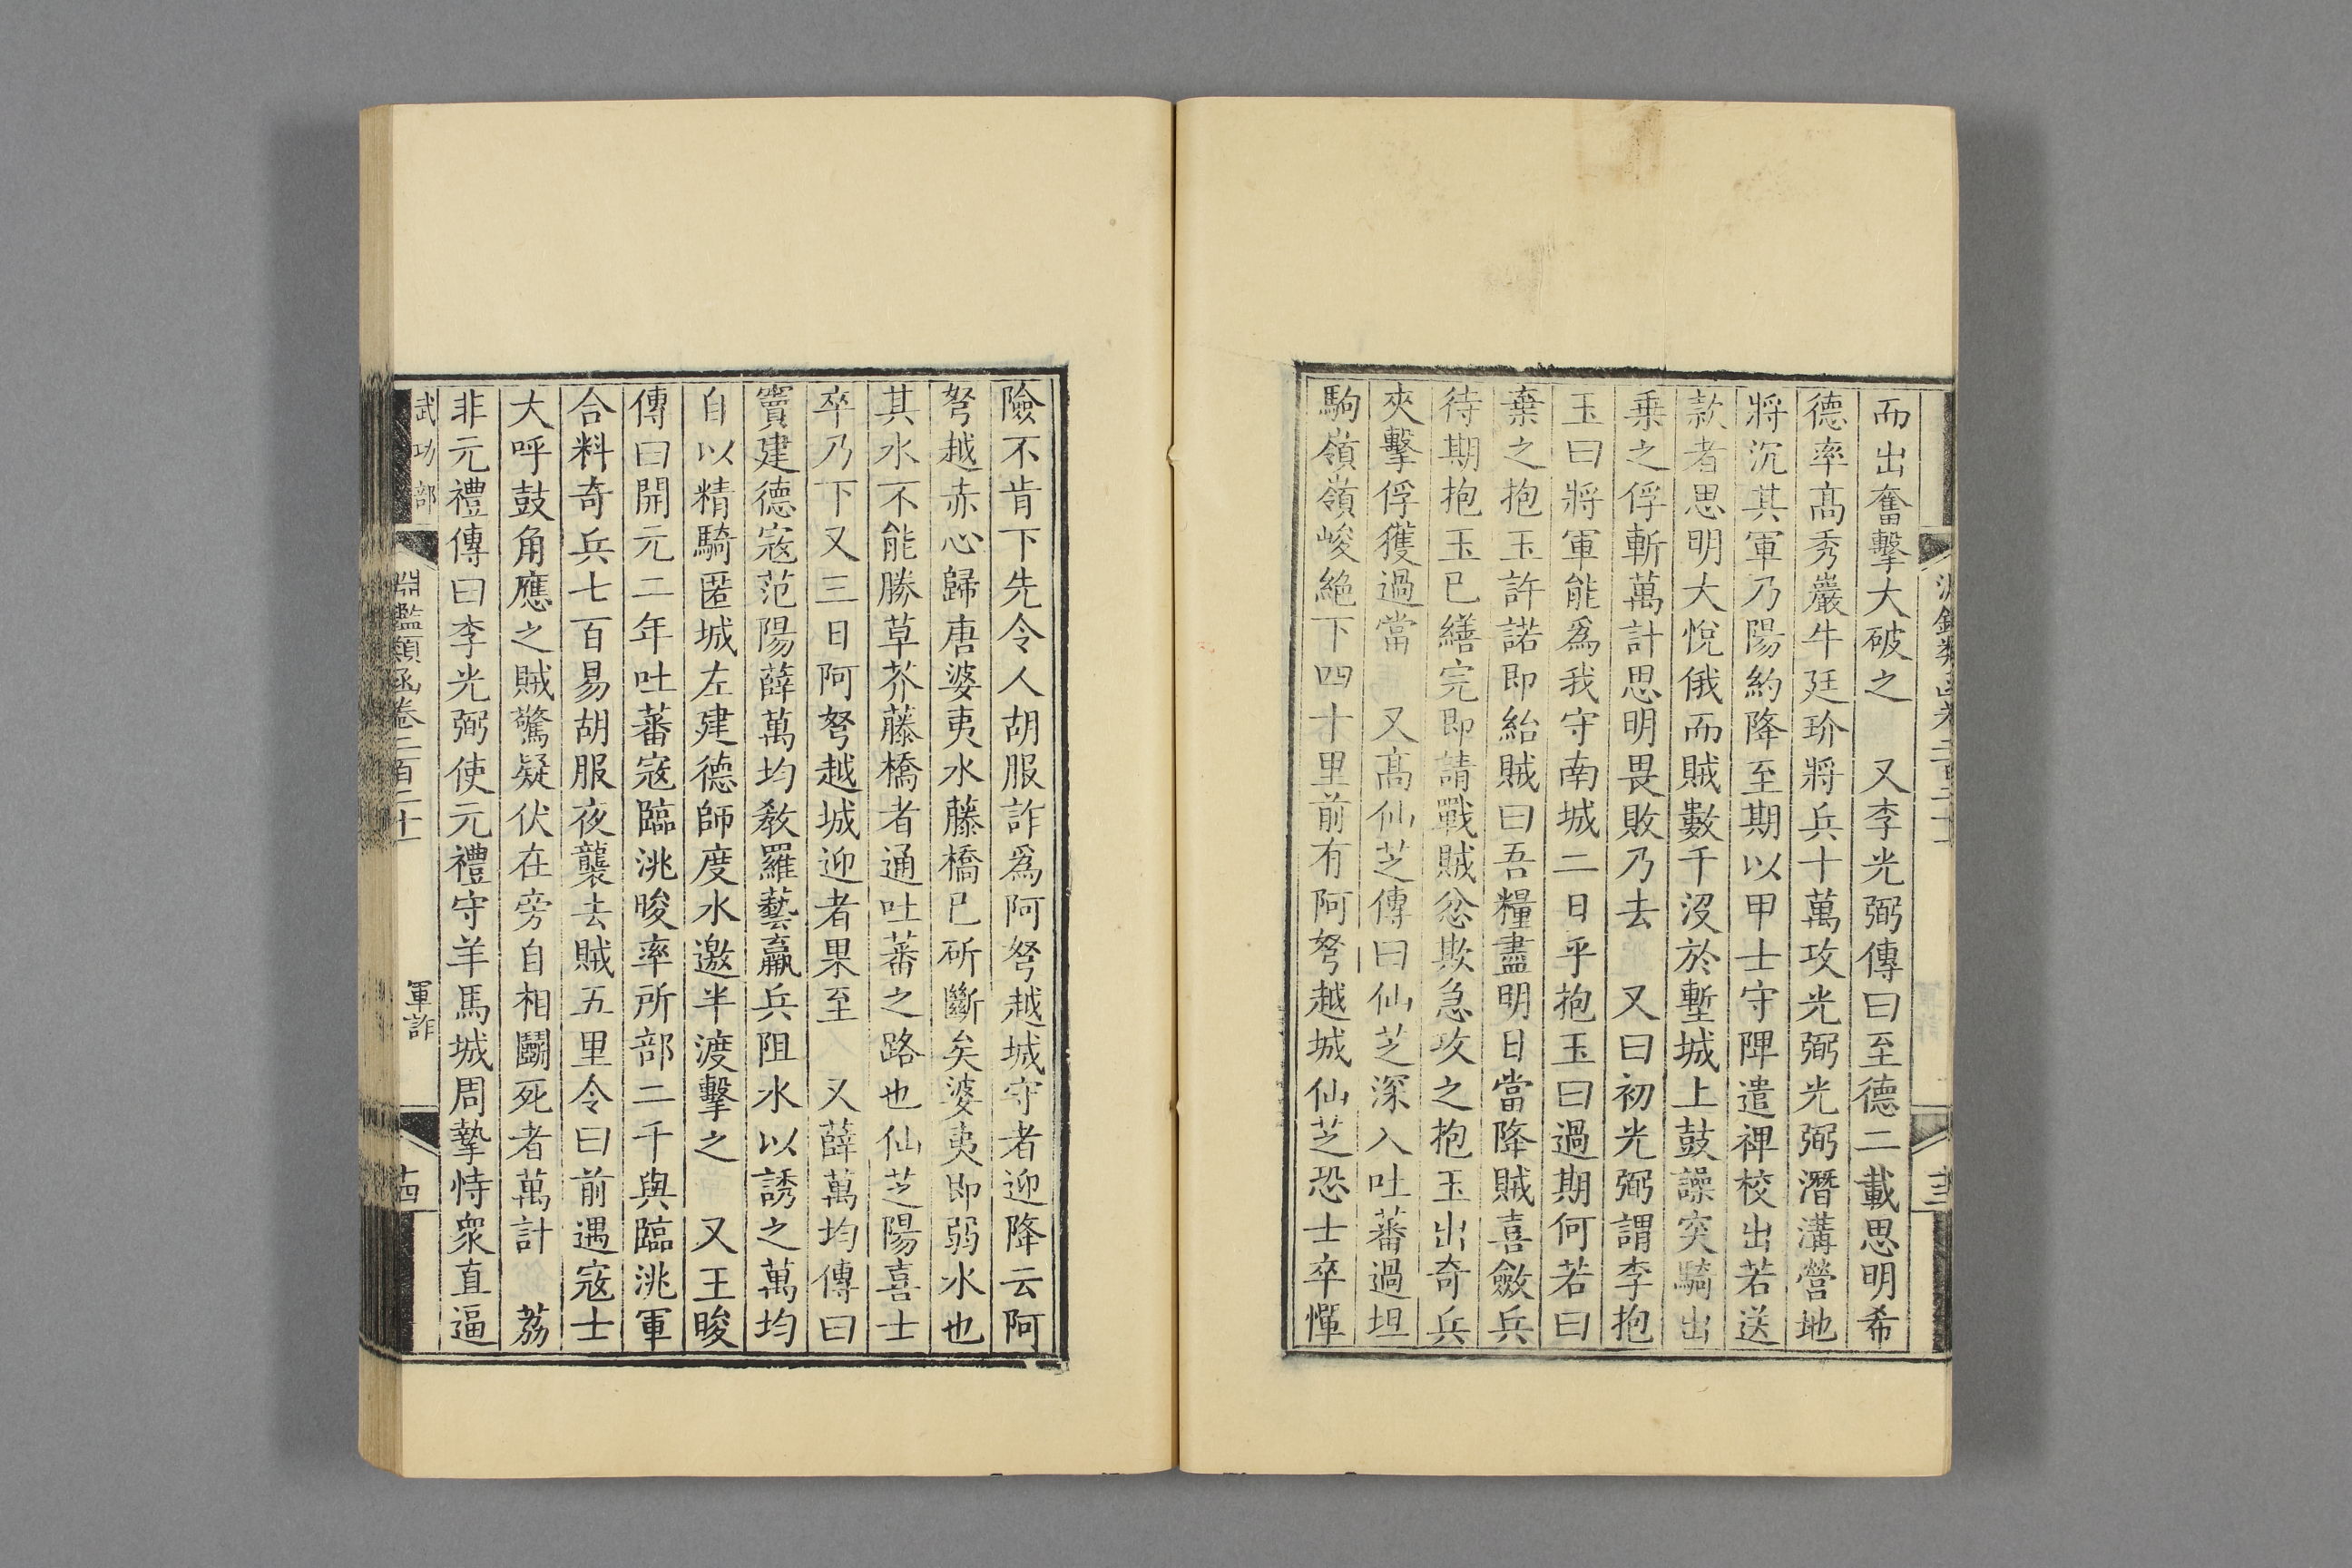 而出奮擊大破之　又李光弼傳曰至德二載思明希
德率高秀巖牛廷玠將兵十萬攻光弼光弼潛溝營地
將沉其軍乃陽約降至期以甲士守陴遣裨校出若送
款者思明大悅俄而賊數千沒於塹城上鼓譟突騎出
乗之俘斬萬計思明畏敗乃去　又曰初光弼謂李抱
玉曰將軍能爲我守南城二日乎抱玉曰過期何若曰
棄之抱玉許諾即紿賊曰吾糧盡明日當降賊喜斂兵
待期抱玉已繕完即請戰賊忿欺急攻之抱玉出奇兵
夾擊俘獲過當　又高仙芝傳曰仙芝深入吐蕃過坦
駒嶺嶺峻絶下四十里前有阿弩越城仙芝恐士卒憚
險不肯下先令人胡服詐爲阿弩越城守者迎降云阿
弩越赤心歸唐婆夷水藤橋已斫斷矣婆夷即弱水也
其水不能勝草芥藤橋者通吐蕃之路也仙芝陽喜士
卒乃下又三日阿弩越城迎者果至　又薛萬均傳曰
竇建德寇范陽薛萬均教羅藝羸兵阻水以誘之萬均
自以精騎匿城左建德師度水邀半渡擊之　又王晙
傳曰開元二年吐蕃寇臨洮晙率所部二千與臨洮軍
合料奇兵七百易胡服夜襲去賊五里令曰前遇寇士
大呼鼓角應之賊驚疑伏在旁自相鬭死者萬計　荔
非元禮傳曰李光弼使元禮守羊馬城周摯恃衆直逼
武功部　淵鑑類函卷二百二十　軍詐　十四